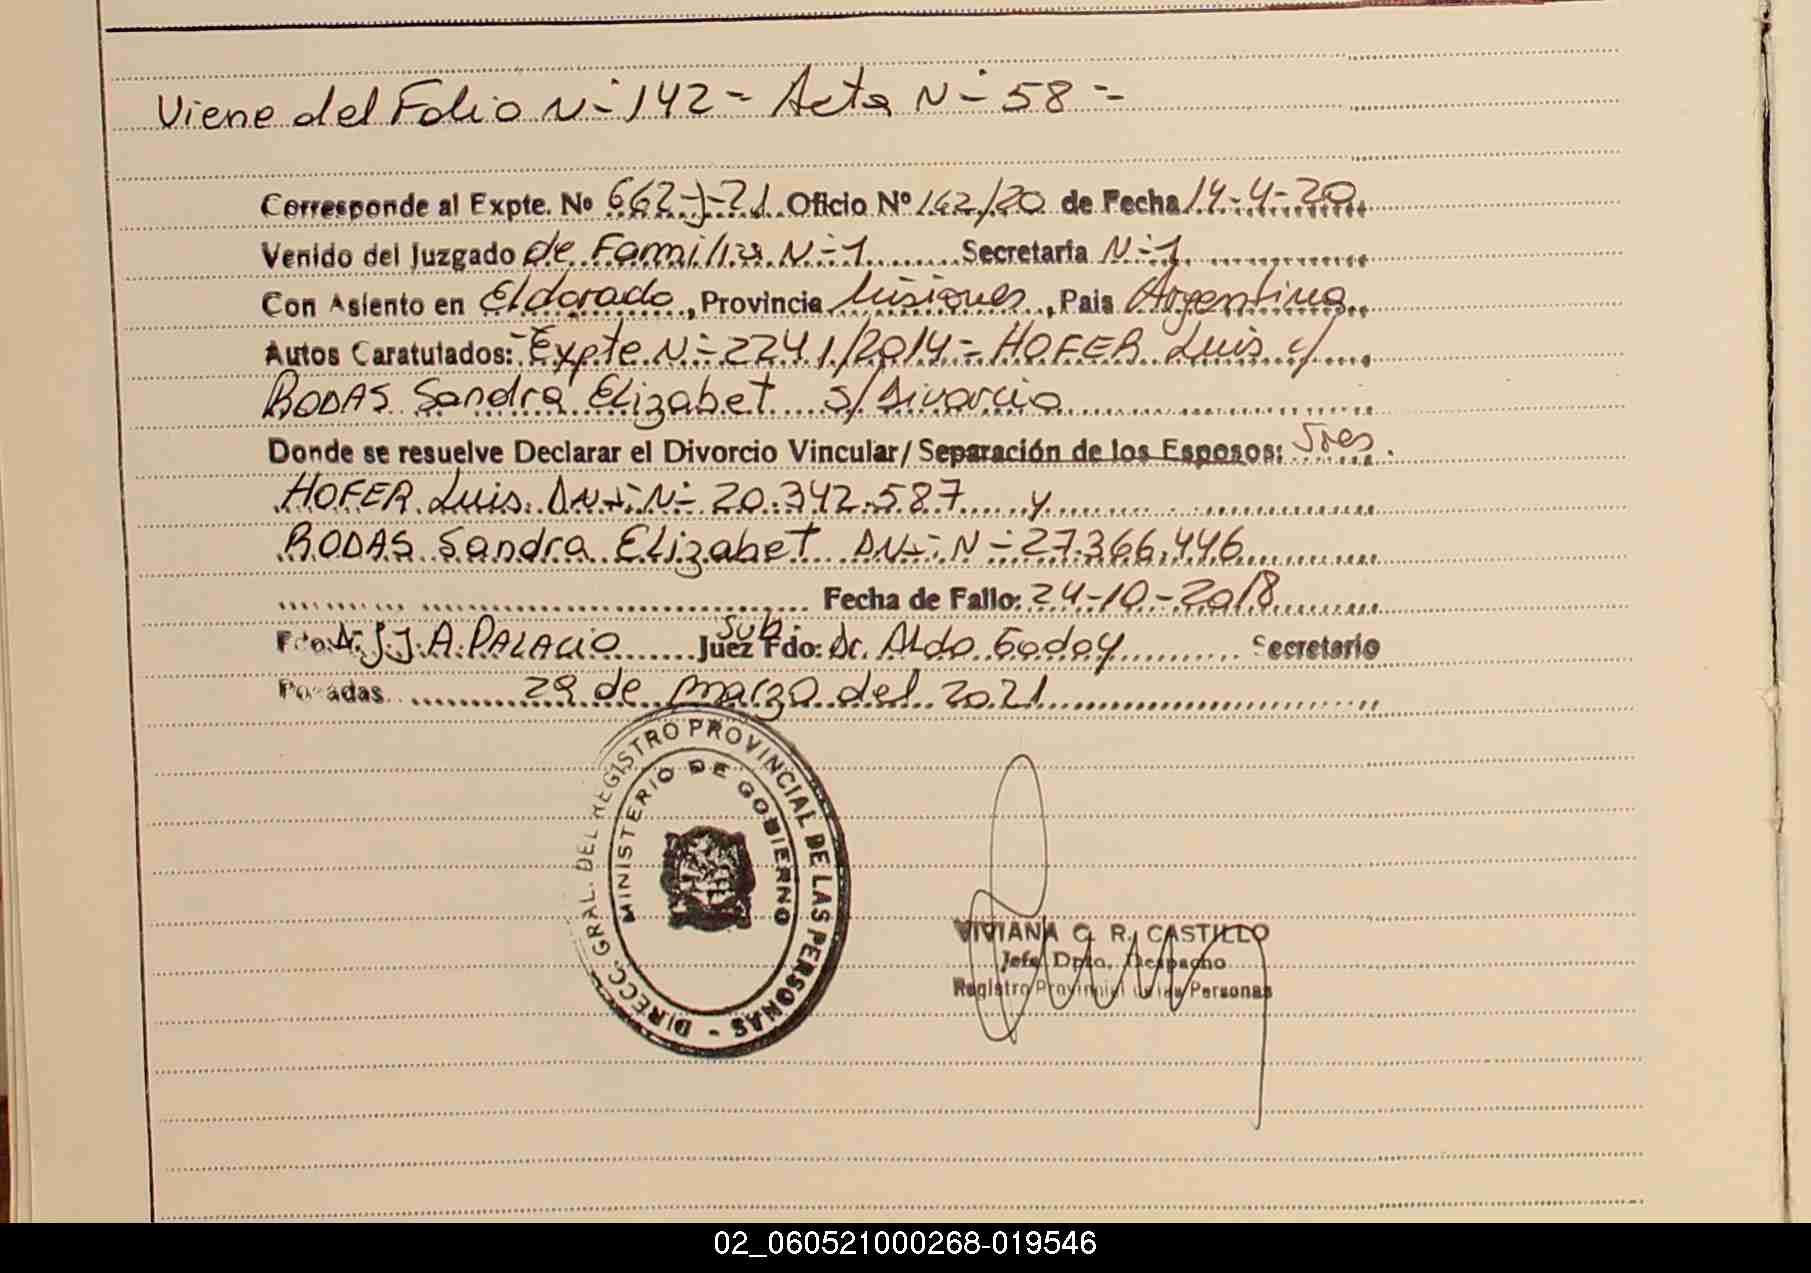 Viene del Folio Nº 142 = Acta Nº 58 =
Corresponde al Expte. Nº 662-J-21 Oficio Nº 162/20 de Fecha 14-4-20
Venido del Juzgado de Familia Nº 1 Secretaría Nº 1
Con Asiento en Eldorado, Provincia Misiones, Pais Argentina
Autos Caratutados: Expte Nº 2241/2014 = HOFER Luis c/
RODAS Sandra Elizabet s/ Divorcio
Donde se resuelve Declarar el Divorcio Vincular / Separación de los Esposos: Sres.
HOFER Luis. DNI. Nº 20.342.587 y
RODAS Sandra Elizabet DNI. Nº 27.366.446
Fecha de Fallo: 24-10-2018
Fdo. Dr. J.J.A. PALACIO Juez Sub. Fdo: Dr. Aldo Godoy Secretario
Posadas 29 de marzo del 2021
DIRECC. GRAL. DEL REGISTRO PROVINCIAL DE LAS PERSONAS -
MINISTERIO DE GOBIERNO
VIVIANA C. R. CASTILLO
Jefe Dpto. Despacho
Registro Provincial de las Personas
02_060521000268-019546